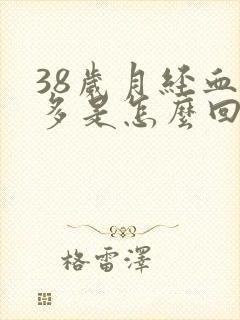 38歲月經血
多是怎麼回
格雷澤